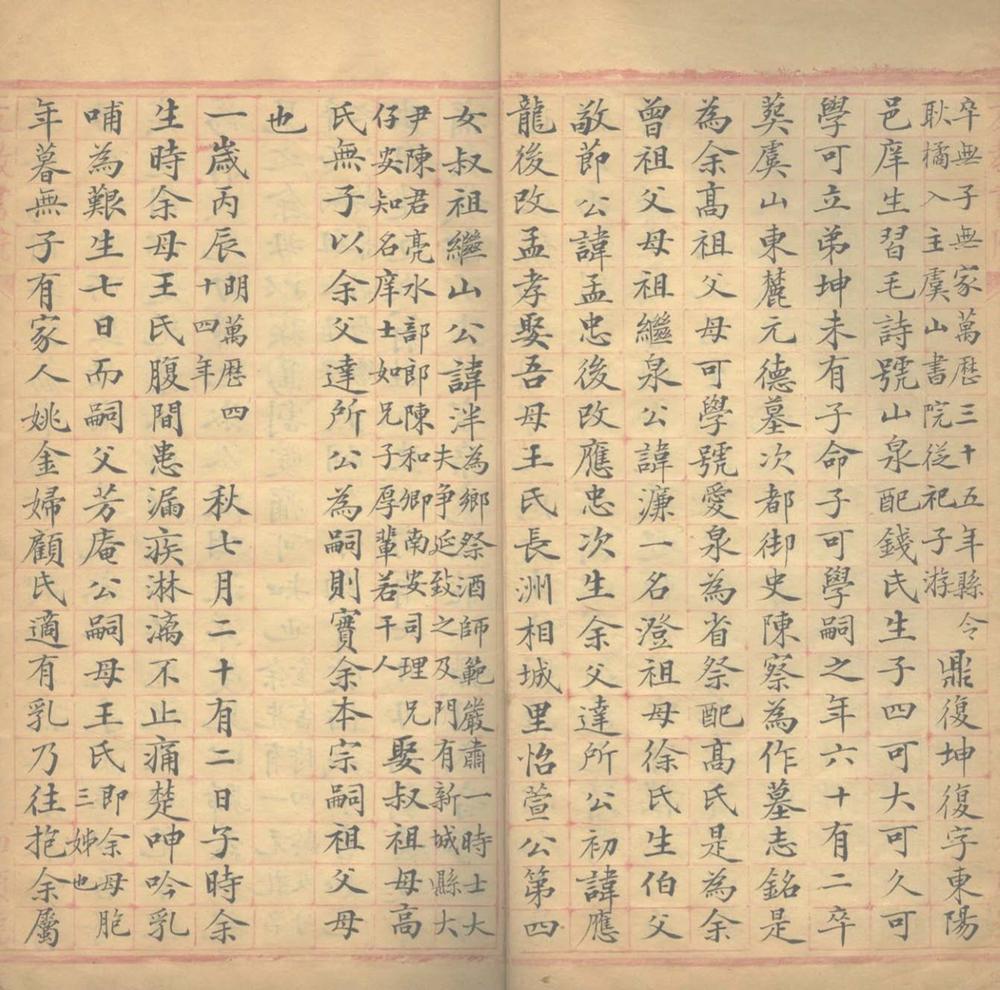 卒無子無家萬歷三十五年縣令
耿橘入主虞山書院從祀子游
鼎復坤復字東陽
邑庠生習毛詩號山泉配錢氏生子四可大可久可
學可立弟坤未有子命子可學嗣之年六十有二卒
葬虞山東麓元德墓次都御史陳察為作墓志銘是
為余高祖父母可學號愛泉為省祭配高氏是為余
曾祖父母祖繼泉公諱濂一名澄祖母徐氏生伯父
敬節公諱孟忠後改應忠次生余父達所公初諱應
龍後改孟孝娶吾母王氏長洲相城里怡萱公第四
女叔祖繼山公諱泮
為鄉祭酒師範嚴肅一時士大
夫爭延致之及門有新城縣大
尹陳君亮水部郎陳和卿南安司理兄
仔安知名庠士如兄子厚輩若干人
娶叔祖母高
氏無子以余父達所公為嗣則實余本宗嗣祖父母
也
一歲丙辰
明萬歷四
十四年
秋七月二十有二日子時余
生時余母王氏腹間患漏疾淋漓不止痛楚呻吟乳
哺為艱生七日而嗣父芳庵公嗣母王氏
即余母胞
三姊也
年暮無子有家人姚金婦顧氏適有乳乃往抱余屬